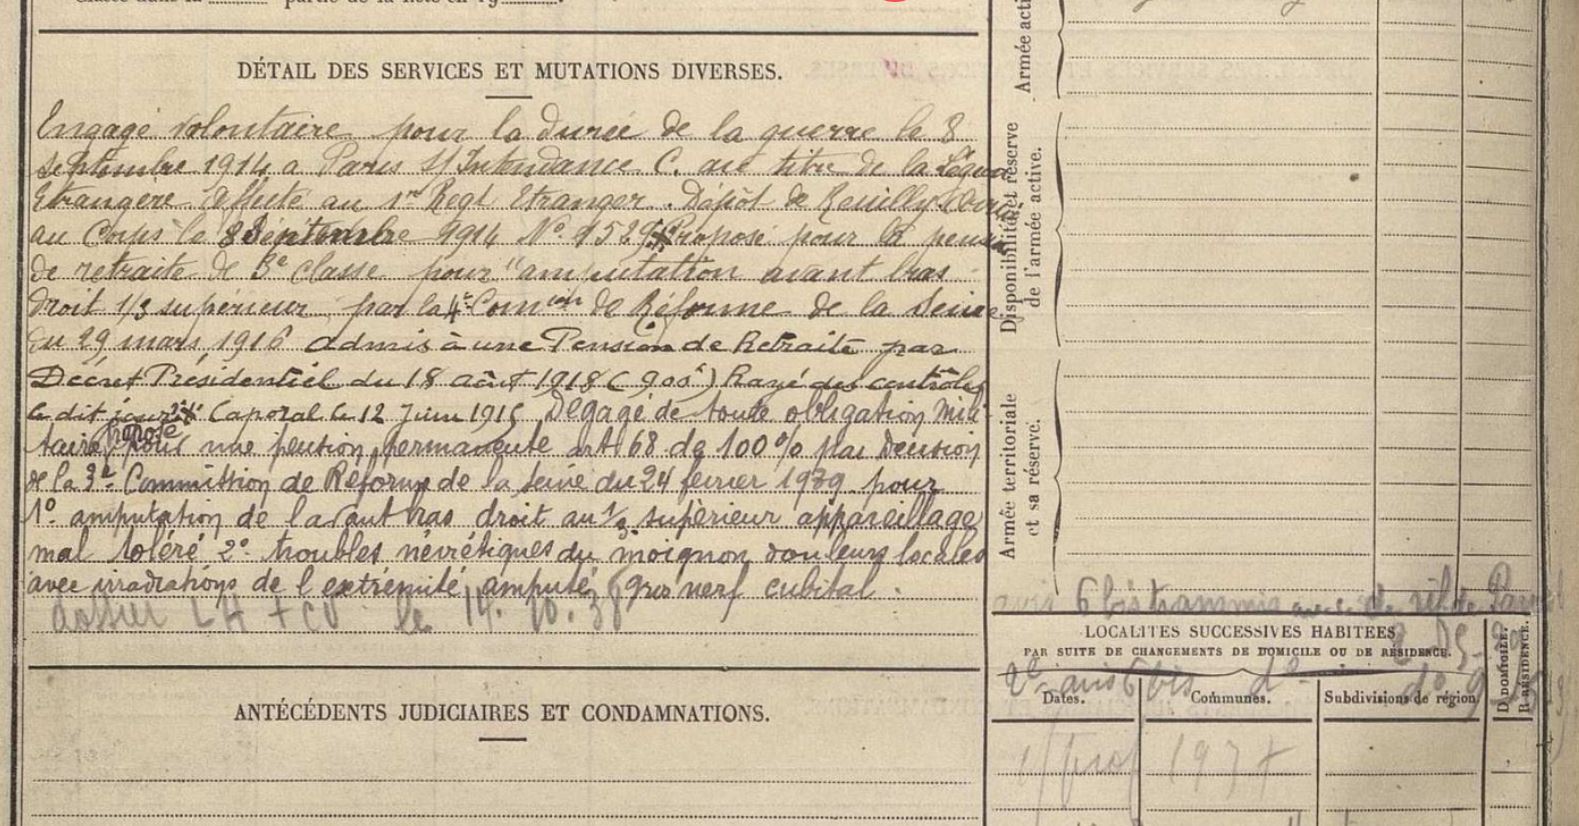 DÉTAIL DES SERVICES ET MUTATIONS DIVERSES.
Engagé volontaire pour la durée de la guerre le 8
septembre 1914 a Paris S/Intendance C. au titre de la Légion
Etrangère Affecté au 1er Regt Etranger. Dépôt de Reuilly
au Corps le 8 Septembre 1914 No 1529 Proposé pour la pension
de retraite de 5e classe pour "amputation avant bras
droit 1/3 supérieur par la 4e Comion de Réforme de la Seine
du 29 mars 1916 admis à une Pension de Retraite par
Décret Présidentiel du 18 août 1918 (900f) Rayé des contrôles
le dit jour Caporal le 12 Juin 1915 Dégagé de toute obligation mili-
taire proposé pour une pension permanente art 68 de 100% par decision
de la 3e Commission de Réforme de la Seine du 24 fevrier 1939 pour
1° amputation de l'avant bras droit au 1/3 supérieur appareillage
mal toléré 2° troubles névritiques du moignon douleurs locales
avec irradiations de l extrémité amputé gros nerf cubital.
dossier LH + CV le 14.10.38
ANTÉCÉDENTS JUDICIAIRES ET CONDAMNATIONS.
Armée
Disponibilité et réserve
de l'armée active.
Armée territoriale
et sa réserve.
avis 6 bis transmis
LOCALITÉS SUCCESSIVES HABITÉES
PAR SUITE DE CHANGEMENTS DE DOMICILE OU DE RÉSIDENCE.
2e avis 6 bis do
Dates. Communes. Subdivisions de région
D. DOMICILE.
R. RÉSIDENCE.